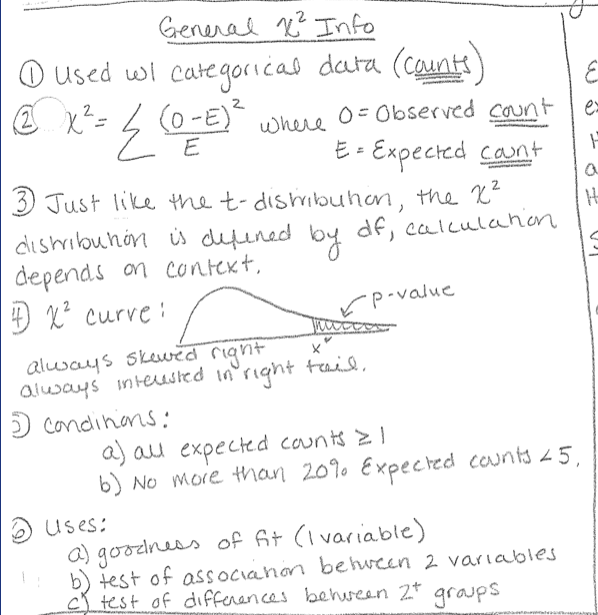 General χ² Info
① Used w/ categorical data (counts)
② χ² = Σ (O-E)²/E where O = Observed count
E = Expected count
③ Just like the t-distribution, the χ²
distribution is defined by df, calculation
depends on context.
④ χ² curve:
p-value
always skewed right
χ²
always interested in right tail.
⑤ Conditions:
a) all expected counts ≥ 1
b) No more than 20% Expected counts < 5.
⑥ Uses:
a) goodness of fit (1 variable)
b) test of association between 2 variables
c) test of differences between 2+ groups